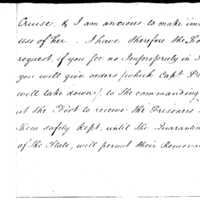 Cruise, & I am anxious to make im
use of her. I have therefore the Ho
request, if you for no Impropriety in
you will give orders (which Capt. D
will take down), to the commanding
at the Port to receive the Prisoners
them safely kept, until the Quarantin
of the State, will permit their Remova